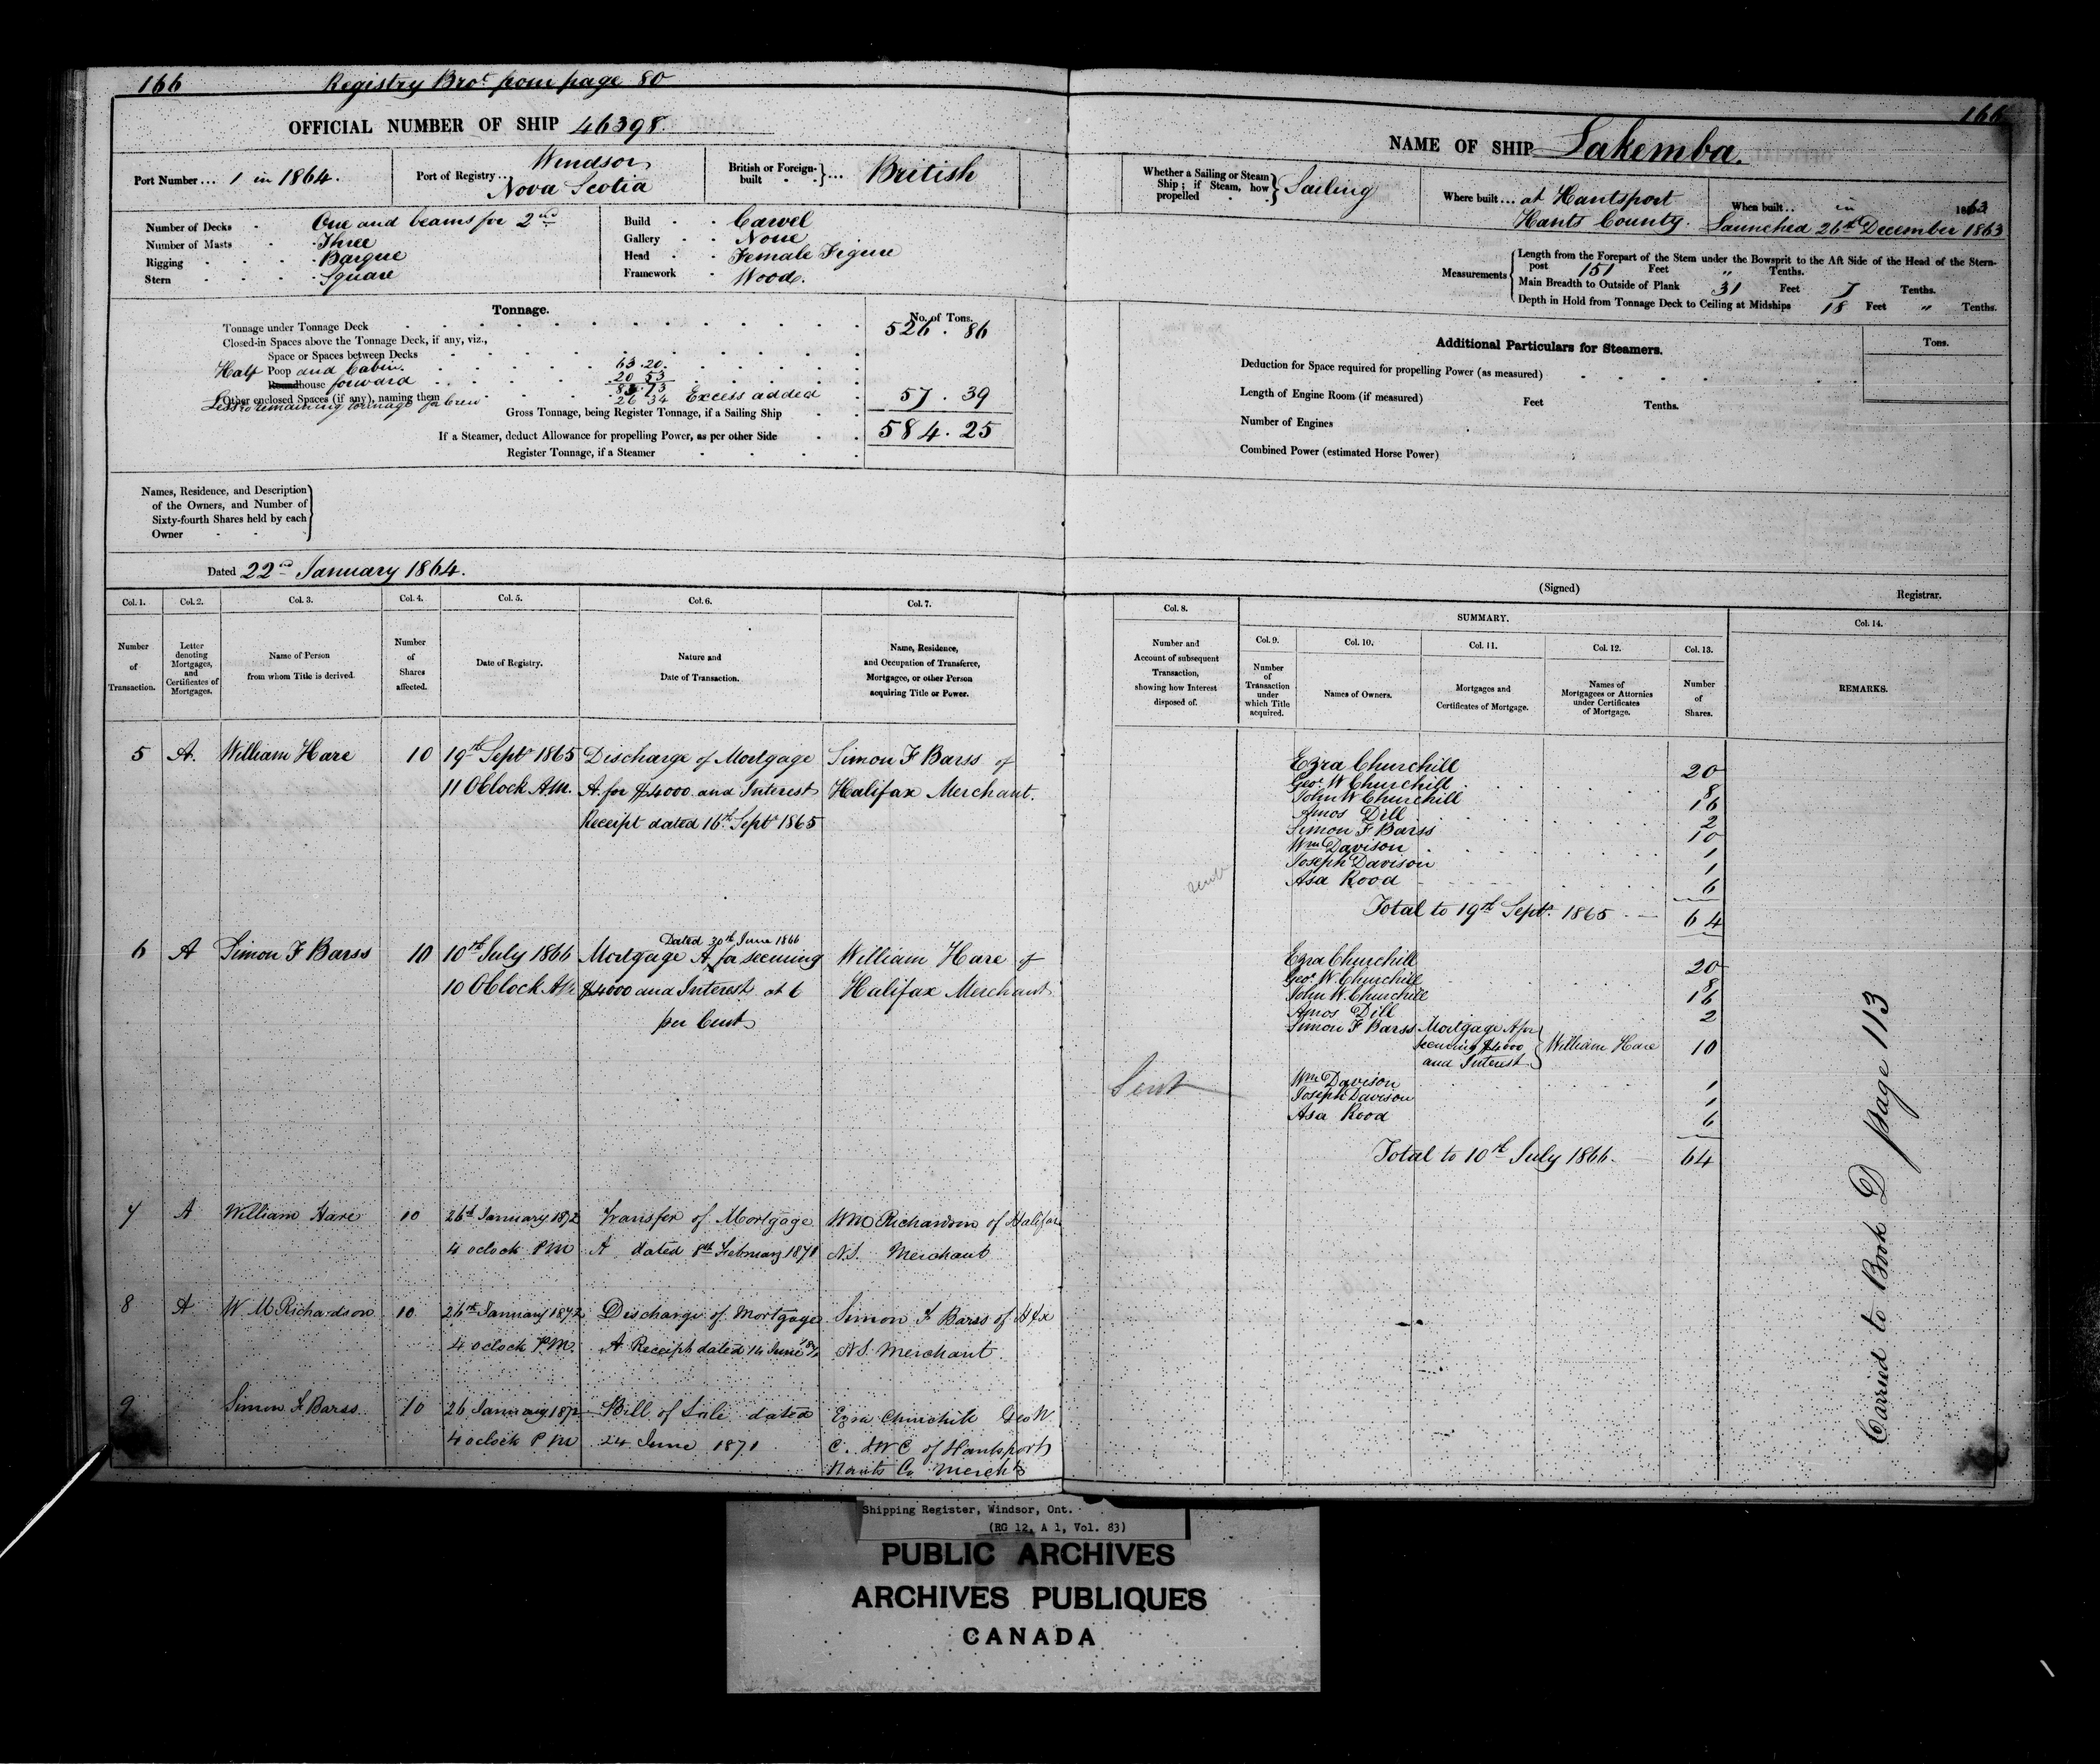 166 Registry Brot from page 80
OFFICIAL NUMBER OF SHIP 46398.
Port Number ... 1 in 1864.
Port of Registry .. Windsor
Nova Scotia
British or Foreign-
built } ... British
Number of Decks One and beams for 2nd
Number of Masts Three
Rigging Barque
Stern Square
Build Carvel
Gallery None
Head Female Figure
Framework Wood.
Tonnage.
No. of Tons.
Tonnage under Tonnage Deck 526 . 86
Closed-in Spaces above the Tonnage Deck, if any, viz.,
Space or Spaces between Decks
Half Poop and Cabin. 63.20.
Roundhouse forward 20 53
83.73
Other enclosed Spaces (if any), naming them
Less remaining tonnage for Crew 26 34 Excess added 57 . 39
Gross Tonnage, being Register Tonnage, if a Sailing Ship
584.25
If a Steamer, deduct Allowance for propelling Power, as per other Side
Register Tonnage, if a Steamer
Names, Residence, and Description
of the Owners, and Number of
Sixty-fourth Shares held by each
Owner
Dated 22nd January 1864.
Col. 1. Col. 2. Col. 3. Col. 4. Col. 5. Col. 6. Col. 7.
Number
of
Transaction.
Letter
denoting
Mortgages,
and
Certificates of
Mortgages.
Name of Person
from whom Title is derived.
Number
of
Shares
affected.
Date of Registry.
Nature and
Date of Transaction.
Name, Residence,
and Occupation of Transferee,
Mortgagee, or other Person
acquiring Title or Power.
5 A. William Hare 10 19th Septr 1865 Discharge of Mortgage Simon F Barss of
11 OClock A.M. A. for $4000 and Interest Halifax Merchant.
Receipt dated 16th Septr 1865
Dated 30th June 1866
6 A Simon F Barss 10 10th July 1866 Mortgage A for securing William Hare of
10 OClock AM $4000 and Interest at 6 Halifax Merchant
per Cent
7 A William Hare 10 26th January 1872 Transfer of Mortgage Wm Richardson of Halifax
4 oclock PM A dated 8th February 1871 N.S. Merchant
8 A W M Richardson 10 26th January 1872 Discharge of Mortgage Simon F Barss of Hfx
4 oclock PM. A Receipt dated 14 June N.S. Merchant.
9 Simon F Barss. 10 26 January 1872 Bill of Sale dated Ezra Churchill Geo W
4 oclock P M 24 June 1871 C. & J W C of Hantsport
Hants Co Merchts
166
NAME OF SHIP Lakemba.
Whether a Sailing or Steam
Ship; if Steam, how
propelled } Sailing
Where built ... at Hantsport
Hants County.
When built .. in 1863
Launched 26th December 1863
Measurements
Length from the Forepart of the Stem under the Bowsprit to the Aft Side of the Head of the Stern-
post 151 Feet " Tenths.
Main Breadth to Outside of Plank 31 Feet 7 Tenths.
Depth in Hold from Tonnage Deck to Ceiling at Midships 18 Feet " Tenths.
Additional Particulars for Steamers.
Tons.
Deduction for Space required for propelling Power (as measured)
Length of Engine Room (if measured) Feet Tenths.
Number of Engines
Combined Power (estimated Horse Power)
(Signed) Registrar.
Col. 8. SUMMARY. Col. 14.
Col. 9. Col. 10. Col. 11. Col. 12. Col. 13.
Number and
Account of subsequent
Transaction,
showing how Interest
disposed of.
Number
of
Transaction
under
which Title
acquired.
Names of Owners.
Mortgages and
Certificates of Mortgage.
Names of
Mortgagees or Attornies
under Certificates
of Mortgage.
Number
of
Shares.
REMARKS.
Ezra Churchill 20
Geor. W Churchill 8
John W Churchill 16
Amos Dill 2
Simon F Barss 10
Wm Davison 1
Joseph Davison 1
Asa Rood 6
Sent
Total to 19th Septr. 1865 64
Ezra Churchill 20
Geor. W. Churchill 8
John W. Churchill 16
Amos Dill 2
Simon F Barss Mortgage A for
securing $4000 William Hare 10
and Interest
Sent
Wm Davison 1
Joseph Davison 1
Asa Rood 6
Total to 10th July 1866. 64
Carried to Book D page 113
Shipping Register, Windsor, Ont.
(RG 12, A 1, Vol. 83)
PUBLIC ARCHIVES
ARCHIVES PUBLIQUES
CANADA